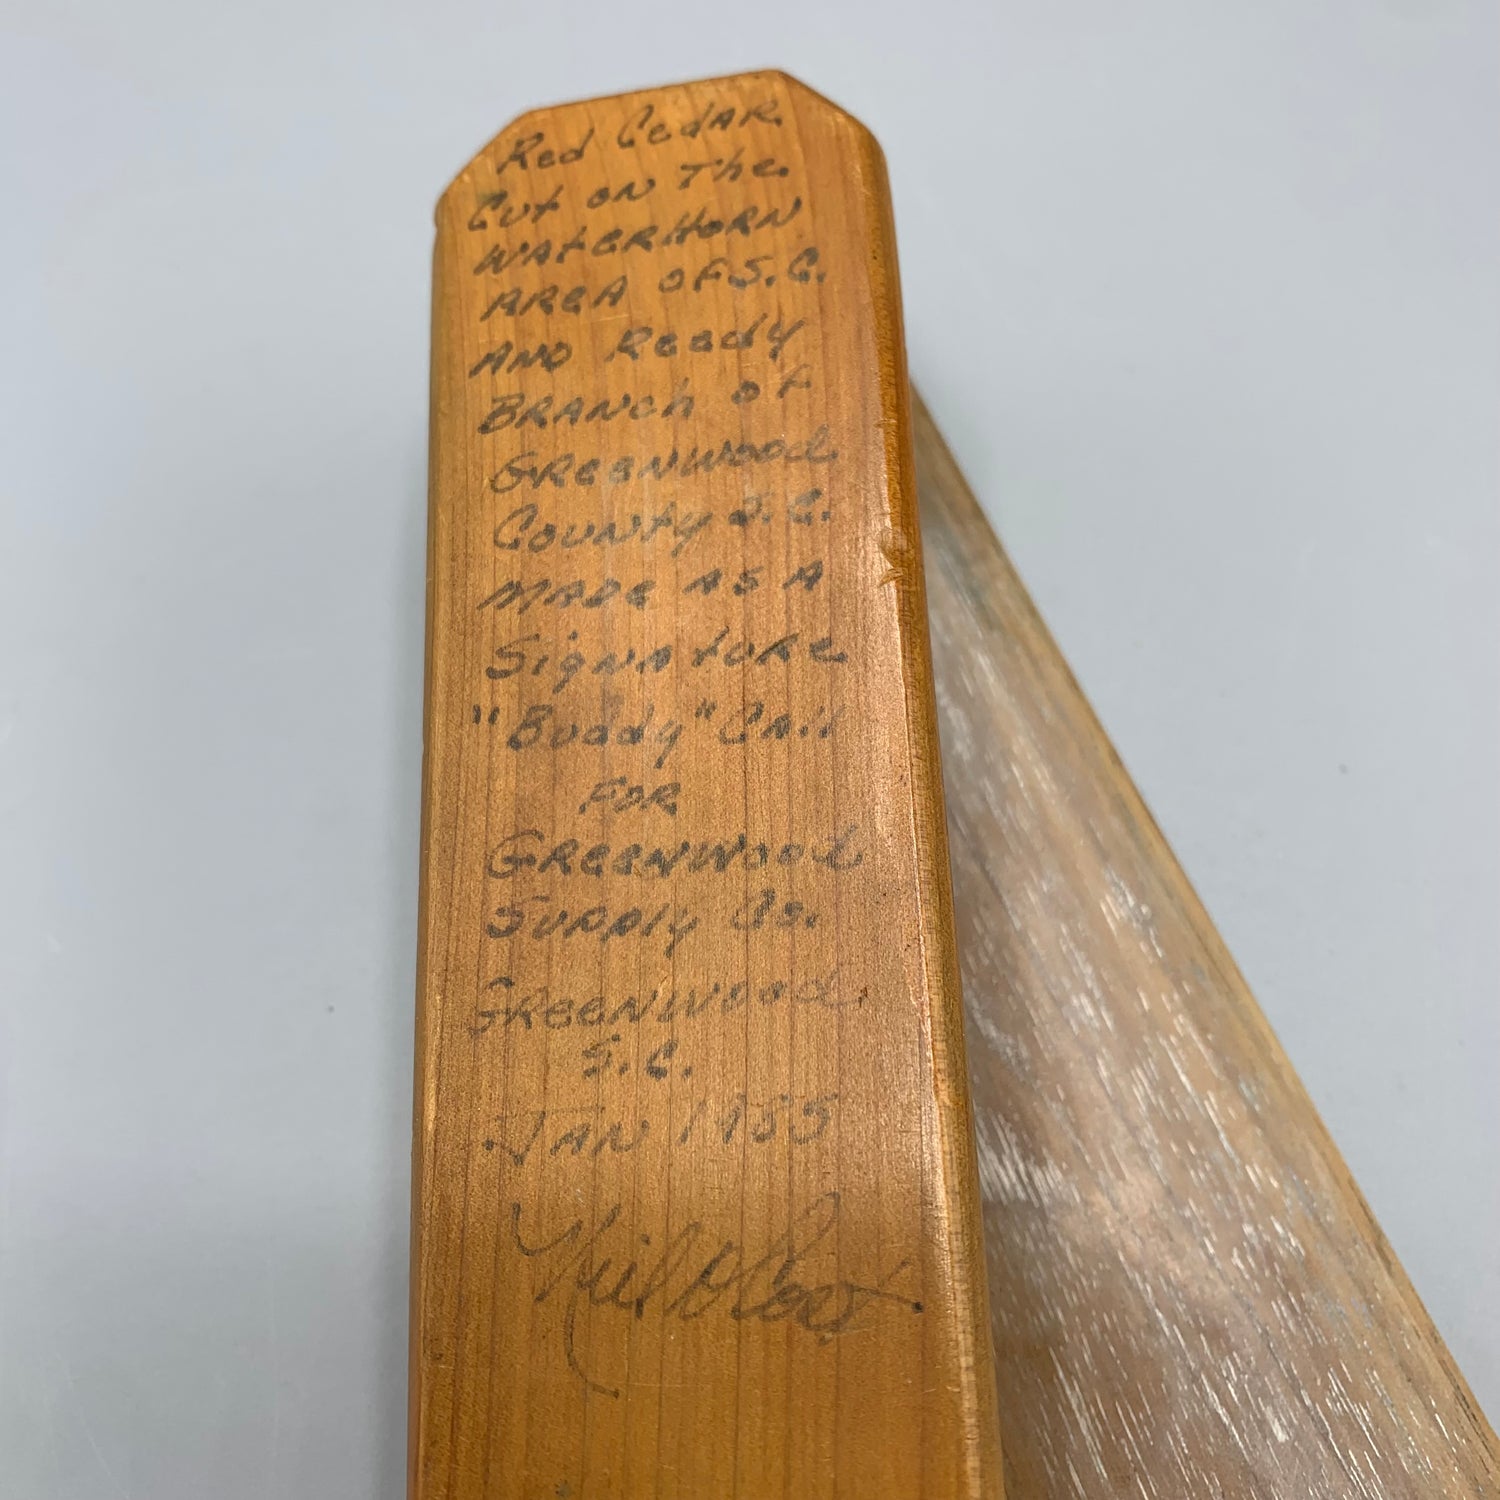 Red Cedar
Cut on The
WATERHORN
AREA OF S.C.
AND Reedy
BRANch of
GREENWood
County S.C.
MADe AS A
SignAture
"Buddy" CAll
FOR
GREENWood
Supply Co.
GREENWood
S.C.
JAN 1955
Neil